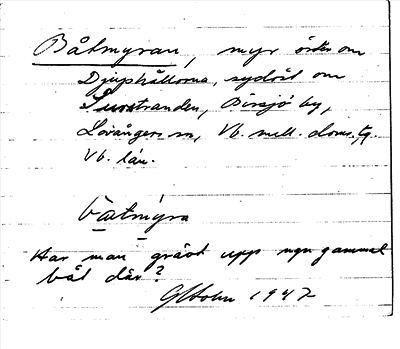 Båtmyran, myr öster om
Djuphällorna, sydöst om
Surstranden, Bissjö by,
Lövångers sn, Vb. mell. doms. tg.
Vb. län.
båtmýra
Har man grävt upp ngn gammal
båt där?
GHolm 1947